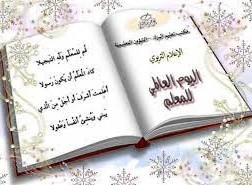 مكتب تعليم - الشؤون التعليمية
الإعلام التربوي
اليوم العالمي
للمعلم
قم للمعلم وفه التبجيلا
كاد المعلم أن يكون رسولا
أعلمت أشرف أو أجل من الذي
يبني وينشئ أنفساً وعقولا